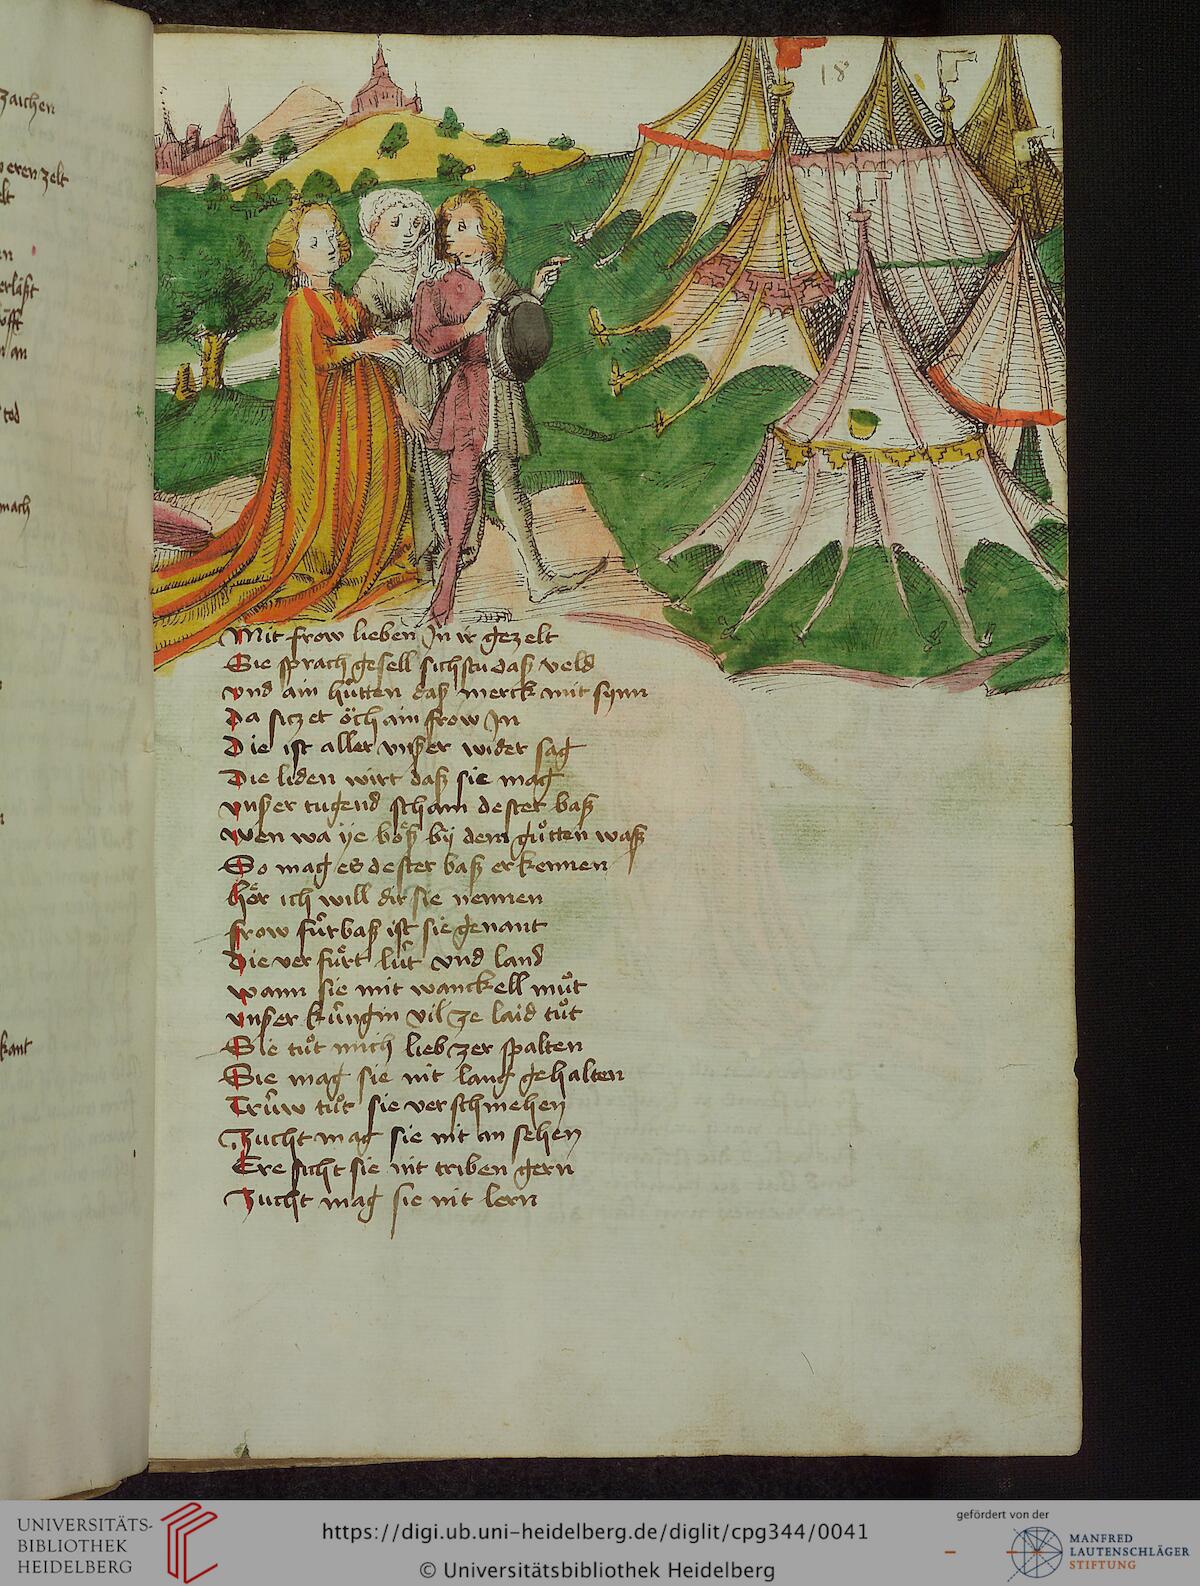 zaichen
eren zelt
elt
en
erläst
an
ted
mach
kant
18
Mit frow lieben In ir gezelt
Sie sprach gesell sichstu daß veld
vnd ain hütten daß merck mit synn
Da siczet öch ain frow In
Die ist aller vnßer wider sag
Die liden wirt daß sie mag
vnßer tugend scham dester baß
wen wa ye böß by dem gůtten waß
So mag es dester baß erkennen
hör ich will dir sie nennen
frow fürbaß ist sie genant
Die verfürt lüt vnd land
wann sie mit wanckell můt
vnßer küngin vil ze laid tůt
Sie tůt mich lieb zer spalten
Sie mag sie nit lang gehalten
Trüw tůt sie verschmehen
Zucht mag sie nit an sehen
Ere sicht sie nit triben gern
Zucht mag sie nit lern
UNIVERSITÄTS-
BIBLIOTHEK
HEIDELBERG
https://digi.ub.uni-heidelberg.de/diglit/cpg344/0041
© Universitätsbibliothek Heidelberg
gefördert von der
MANFRED
LAUTENSCHLÄGER
STIFTUNG